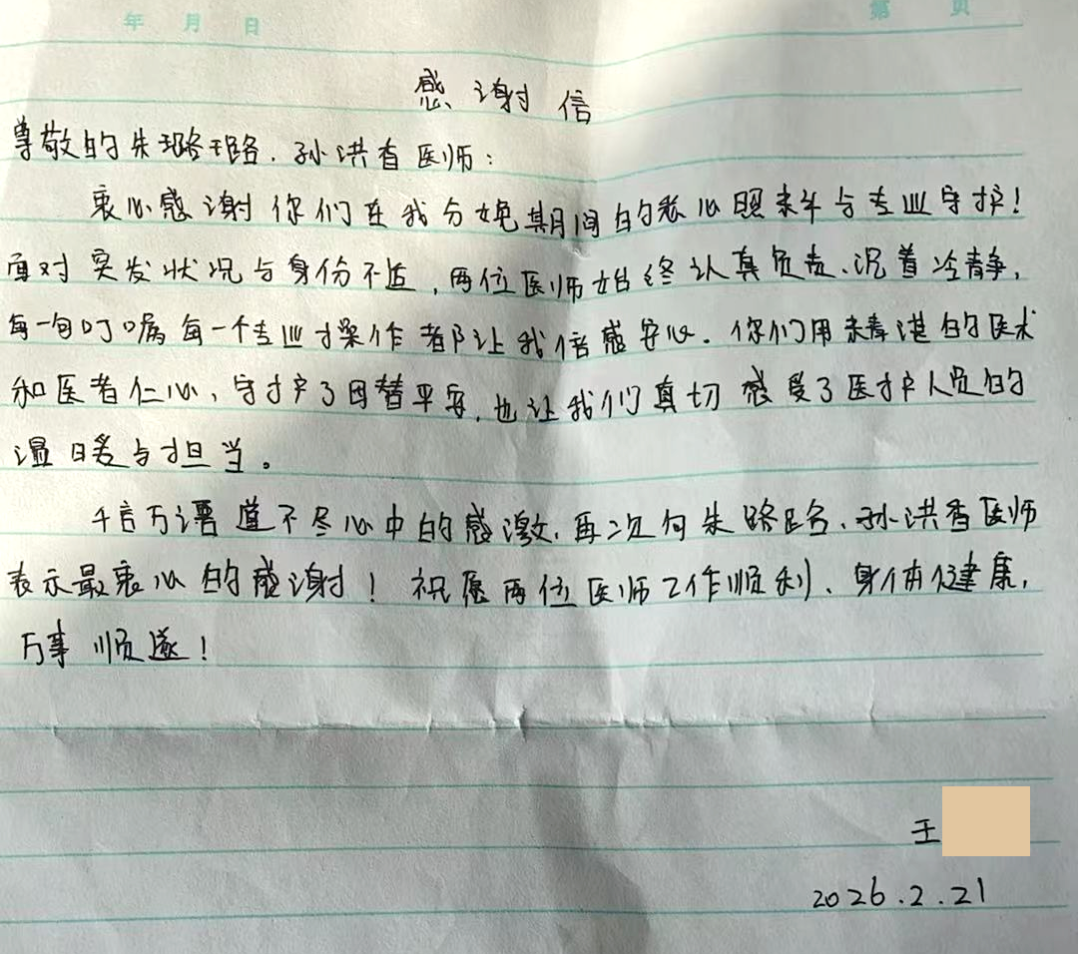 年 月 日 第 页
感谢信
尊敬的朱璐璐、孙洪香医师：
衷心感谢你们在我分娩期间的悉心照料与专业守护！
面对突发状况与身份不适，两位医师始终认真负责、沉着冷静，
每一句叮嘱每一个专业操作都让我倍感安心。你们用精湛的医术
和医者仁心，守护了母婴平安，也让我们真切感受了医护人员的
温暖与担当。
千言万语道不尽心中的感激，再次向朱璐璐、孙洪香医师
表示最衷心的感谢！祝愿两位医师工作顺利、身体健康，
万事顺遂！
王
2026.2.21